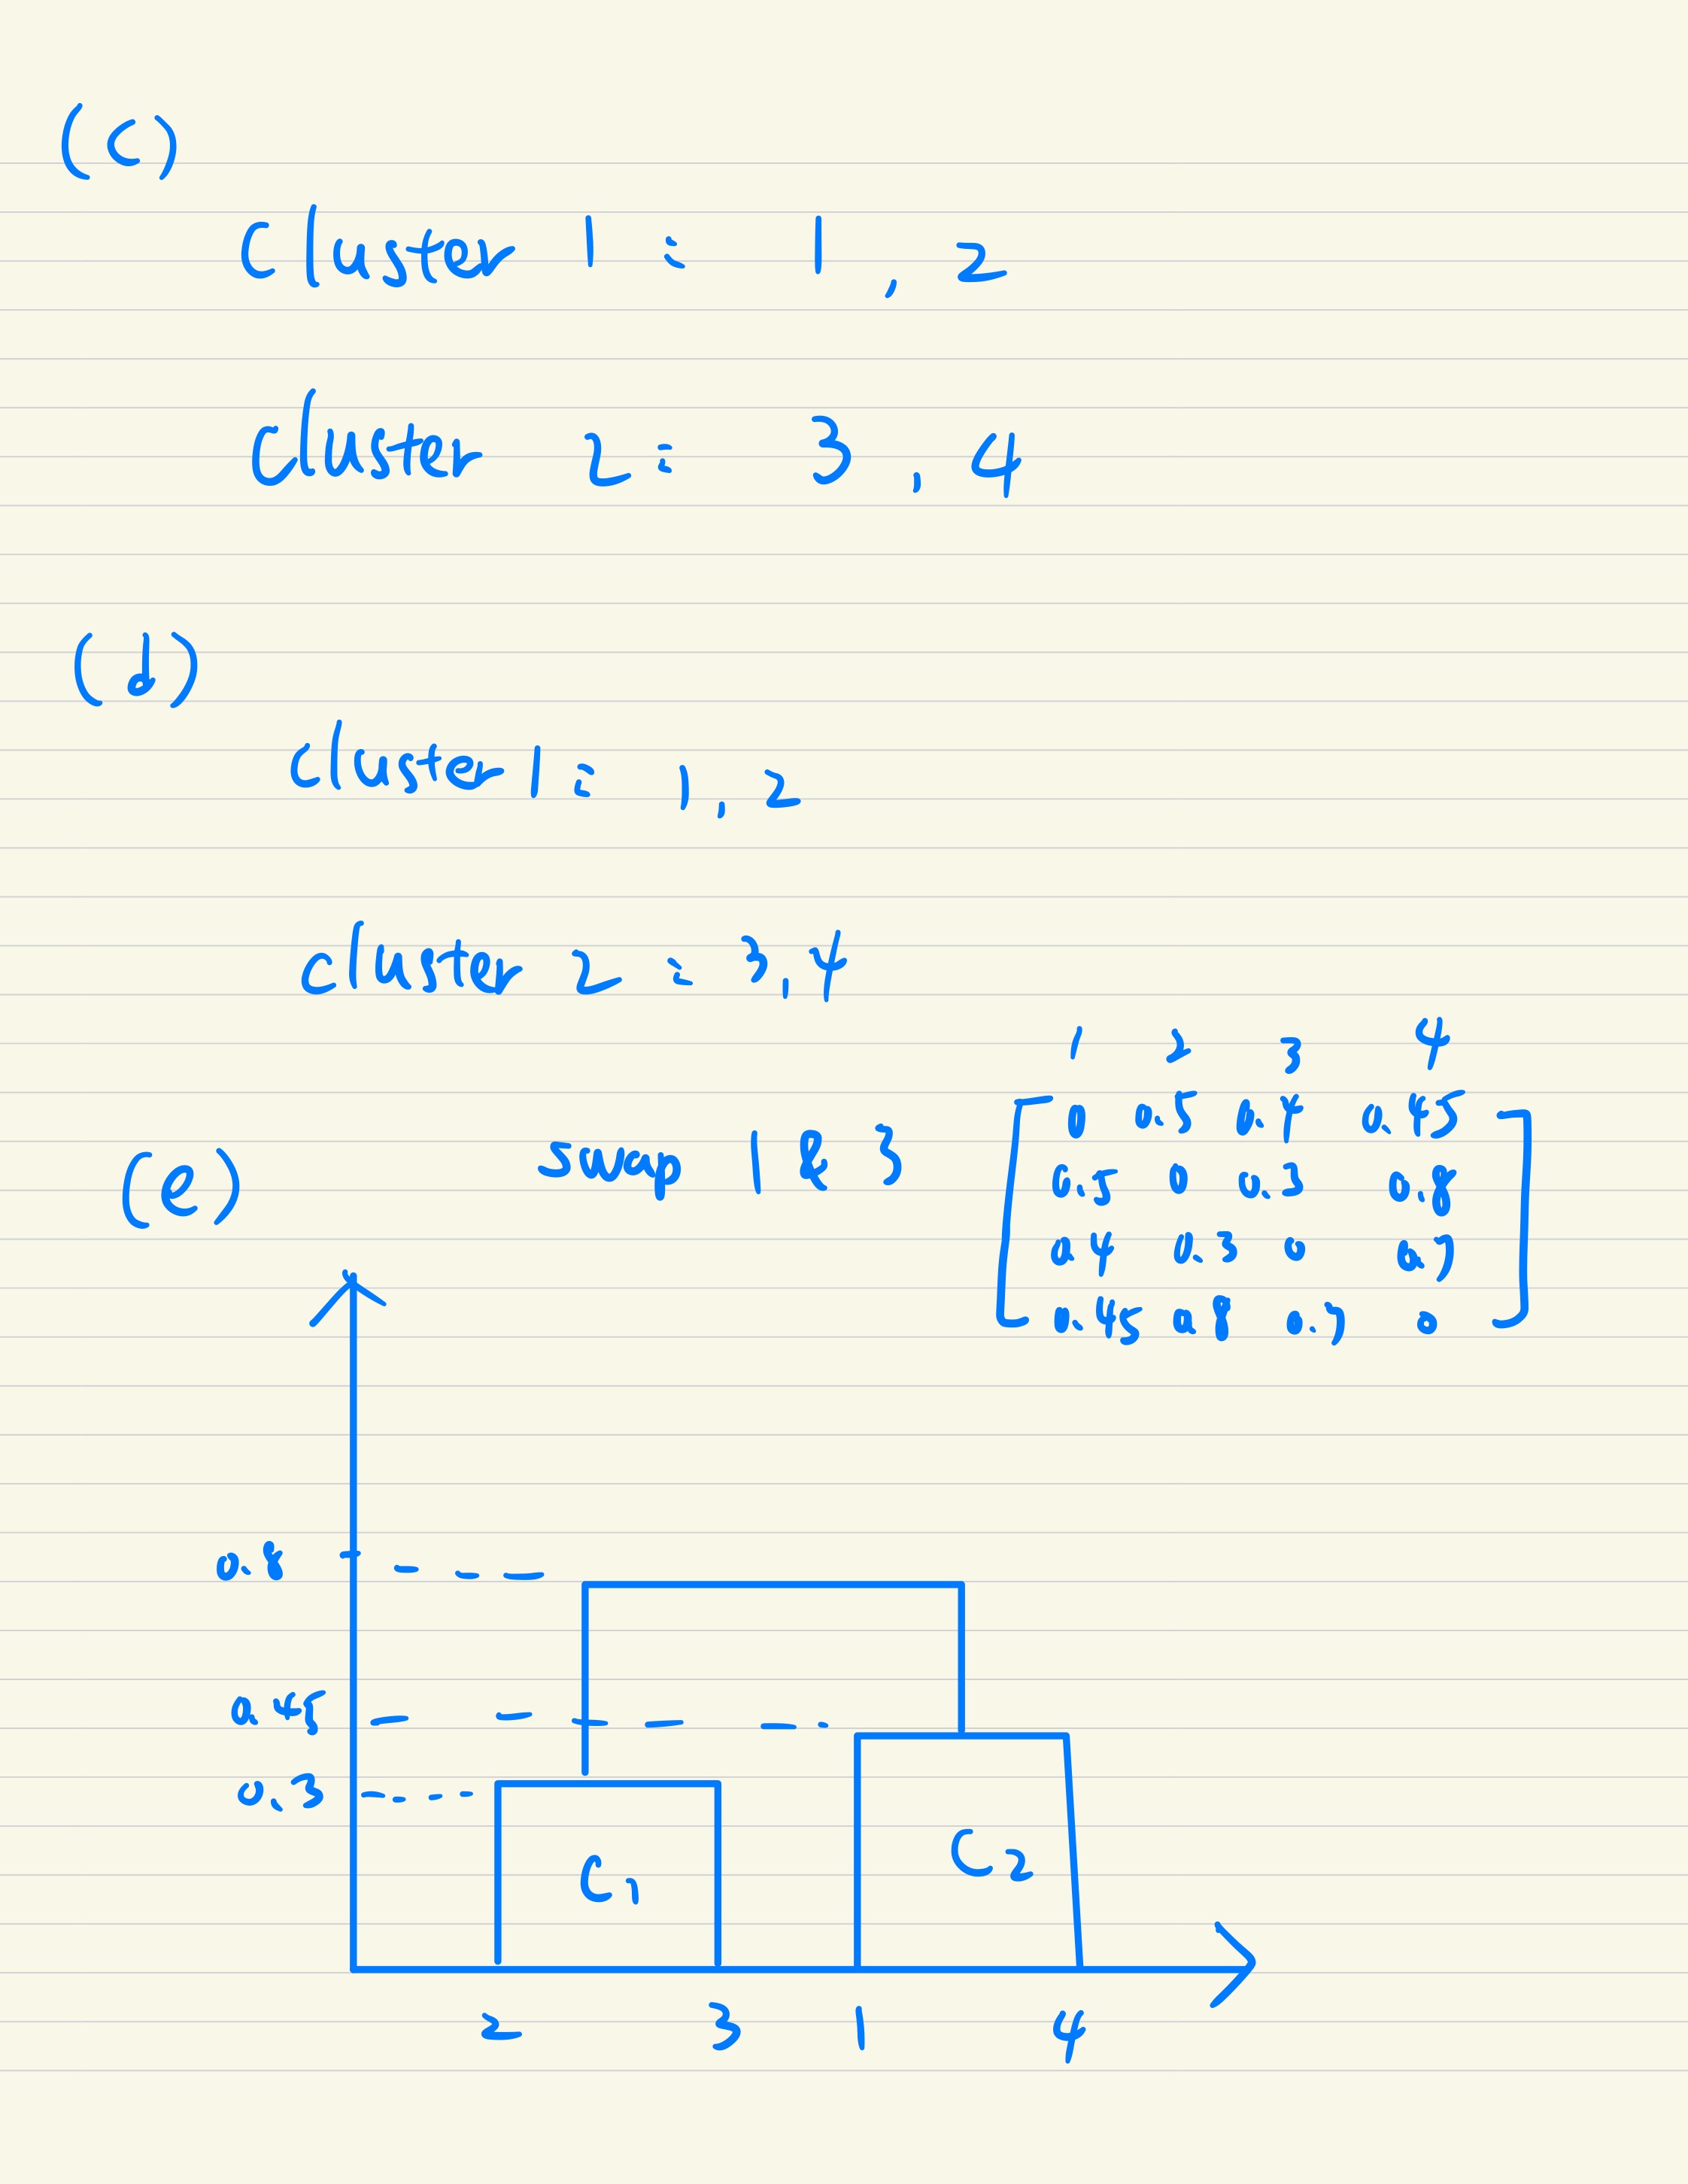 (c)
Cluster 1 : 1 , 2
Cluster 2 : 3 , 4
(d)
Cluster 1 : 1, 2
cluster 2 : 3, 4
(e) swap 1 & 3
1 2 3 4
0 0.5 0.4 0.45
0.5 0 0.3 0.8
0.4 0.3 0 0.7
0.45 0.8 0.7 0
0.8
0.45
0.3
C1
C2
2 3 1 4